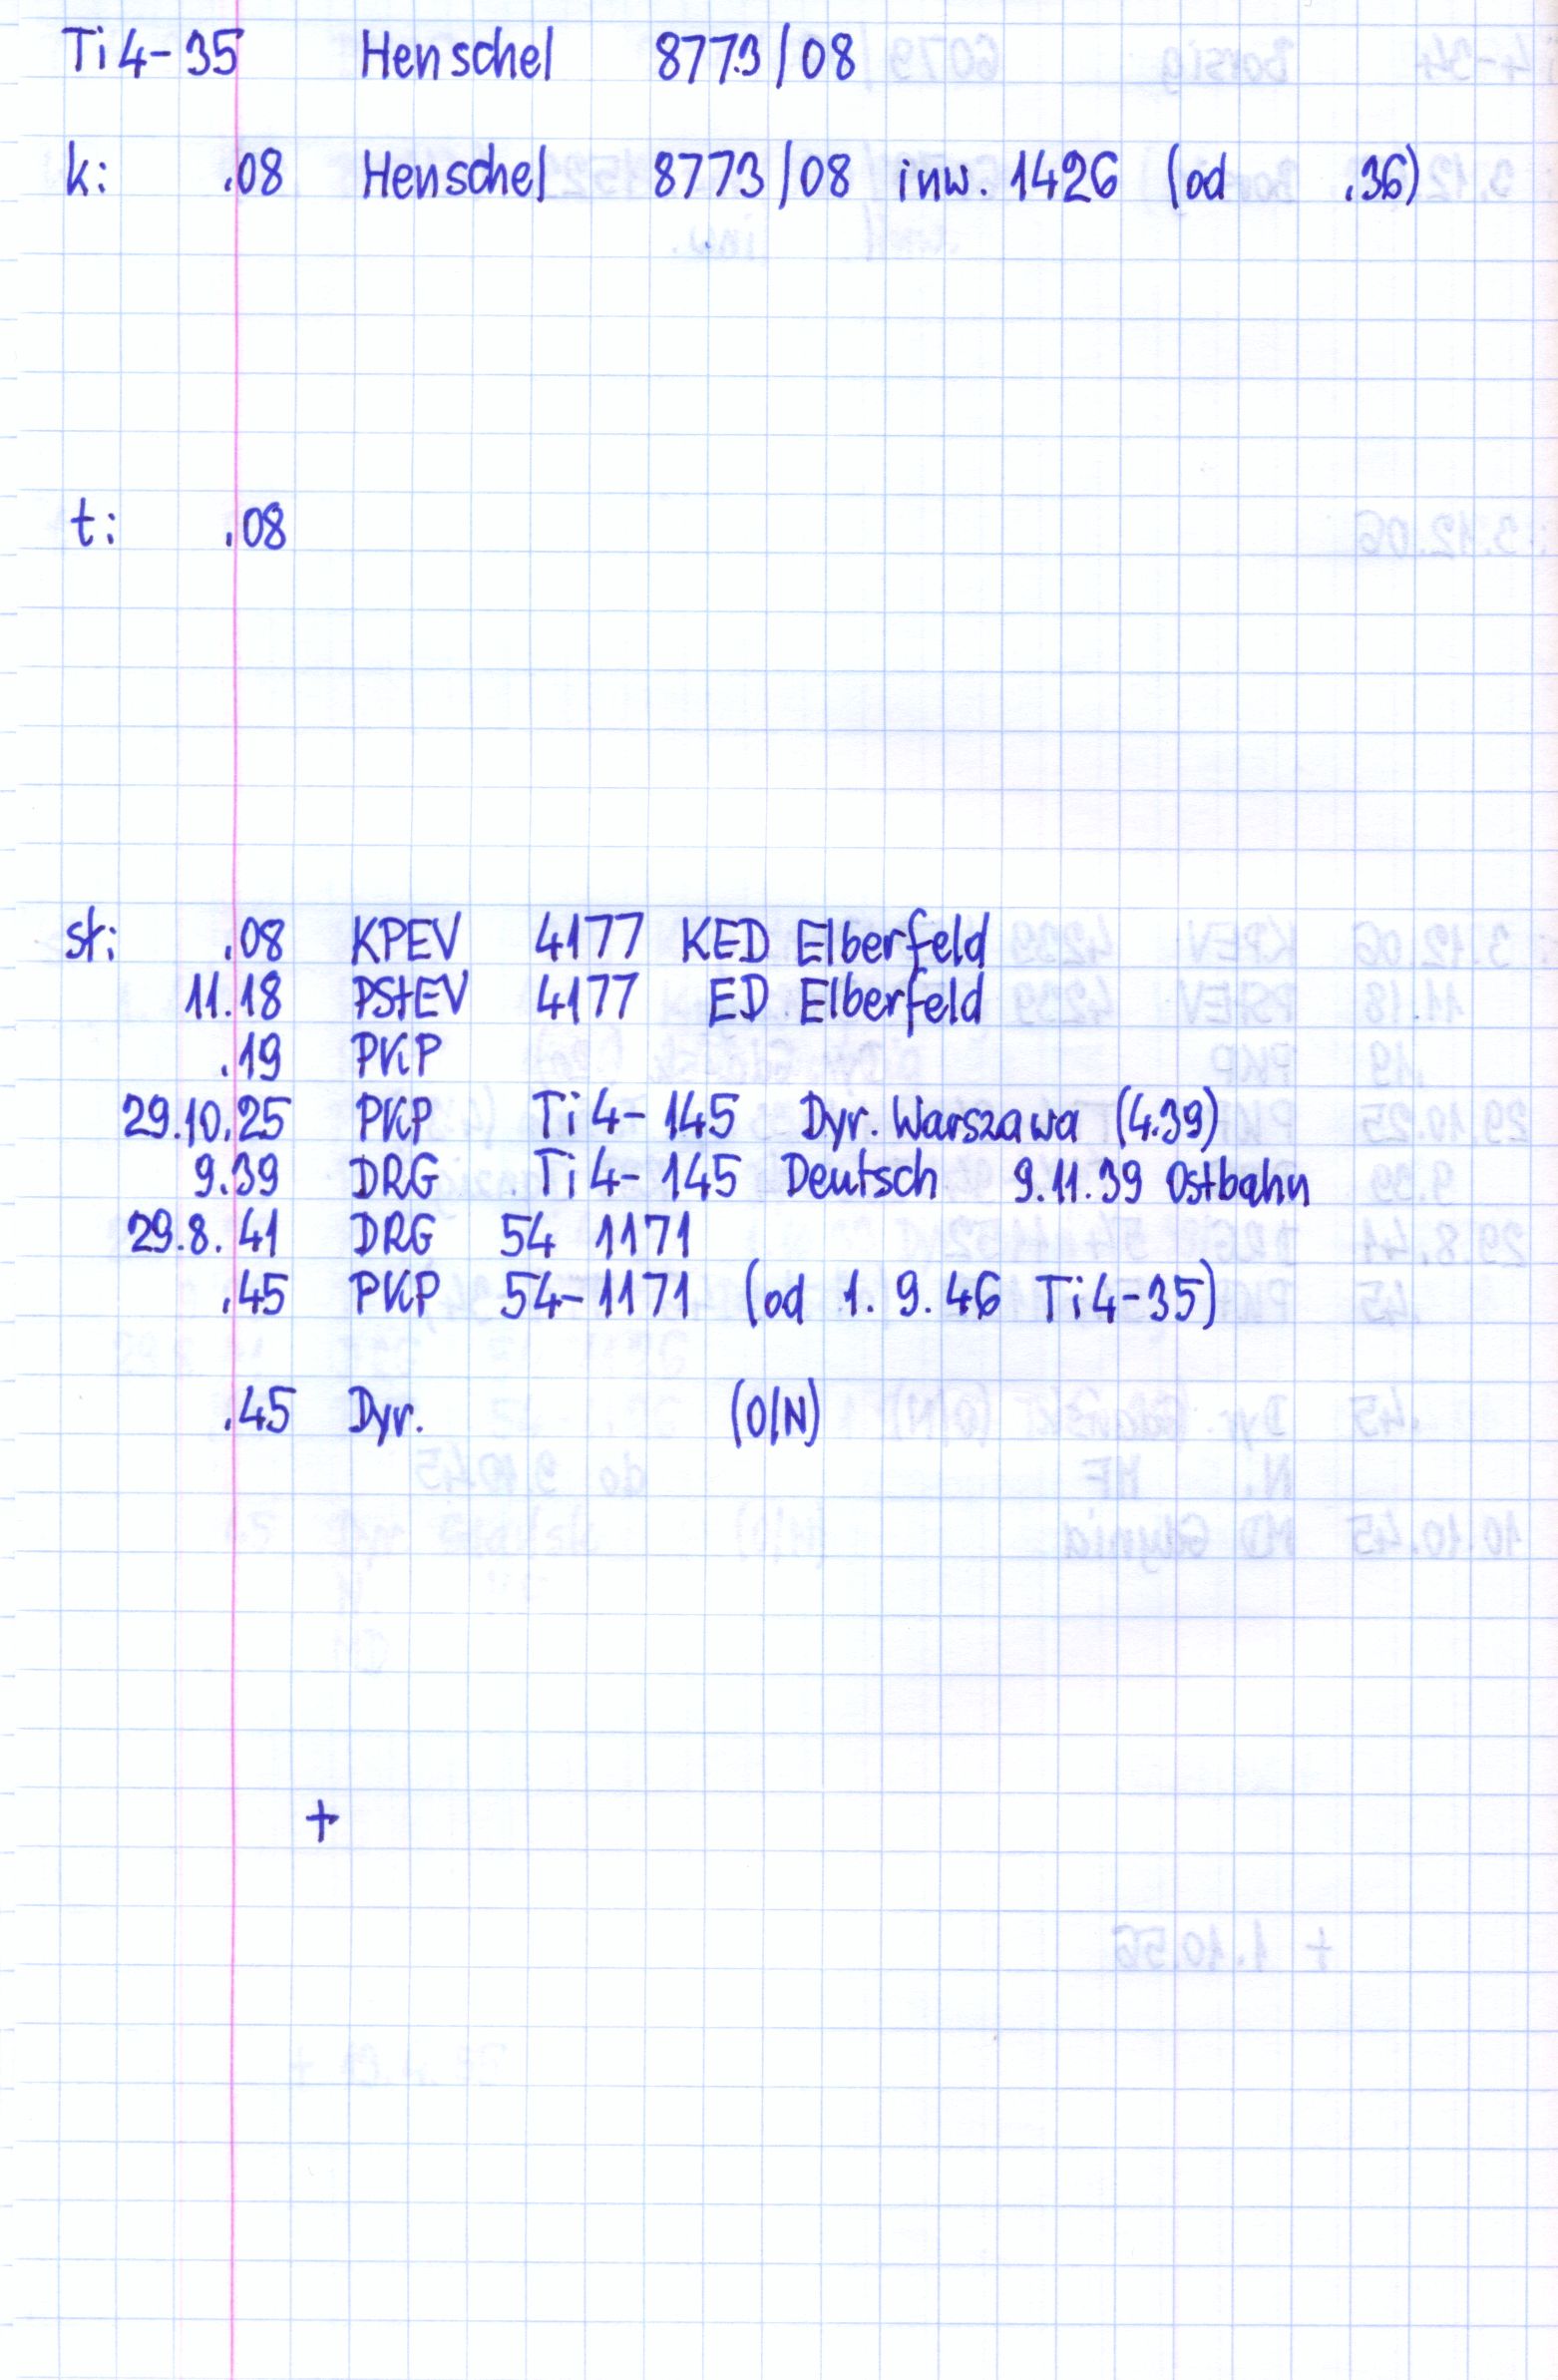 Ti4-35 Henschel 8773/08
k: .08 Henschel 8773/08 inw. 1426 (od .36)
t: .08
st: .08 KPEV 4177 KED Elberfeld
11.18 PStEV 4177 ED Elberfeld
.19 PKP
29.10.25 PKP Ti4-145 Dyr. Warszawa (4.39)
9.39 DRG Ti4-145 Deutsch 9.11.39 Ostbahn
29.8.41 DRG 54 1171
.45 PKP 54-1171 (od 1.9.46 Ti4-35)
.45 Dyr. (O/N)
+